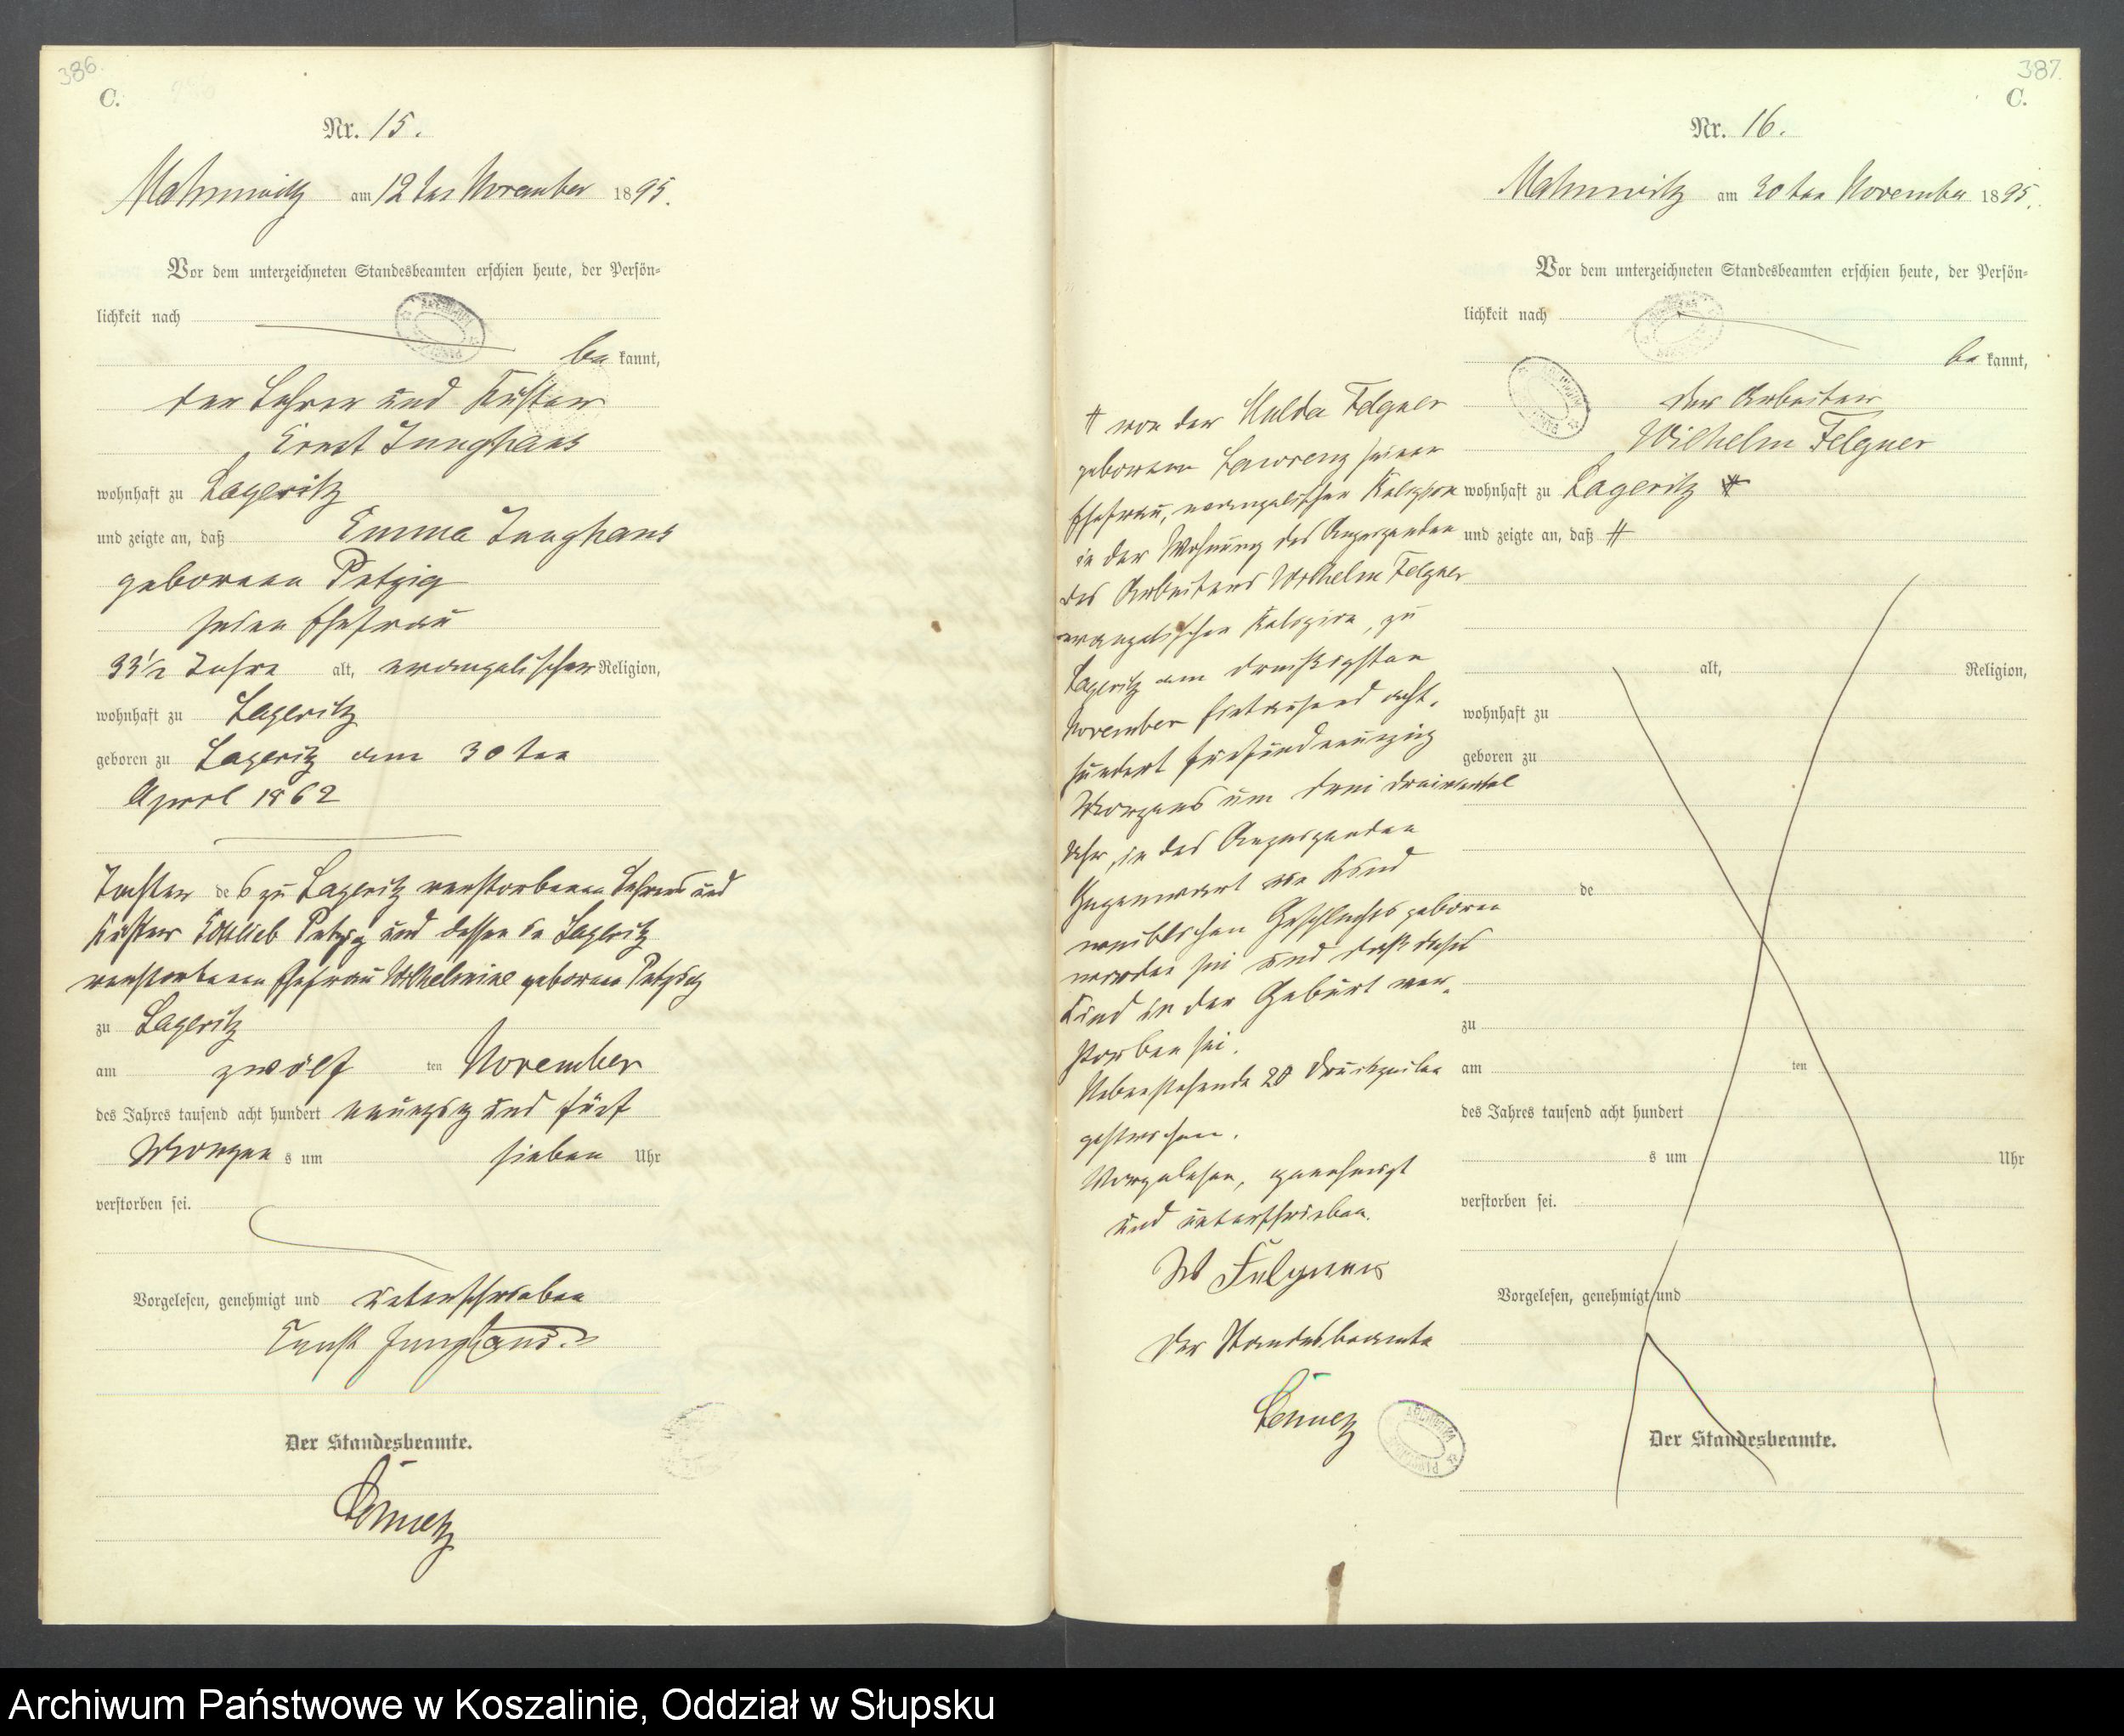 386.
C.
Nr. 15.
Mahnwitz am 12ten November 1895.
Vor dem unterzeichneten Standesbeamten erschien heute, der Persön-
lichkeit nach
be kannt,
der Lehrer und Küster
Ernst Junghans
wohnhaft zu Lageritz
und zeigte an, daß Emma Junghans
geborene Petzig
seine Ehefrau
33 1/2 Jahre alt, evangelischer Religion,
wohnhaft zu Lageritz
geboren zu Lageritz am 30ten
April 1862
Tochter des zu Lageritz verstorbenen Lehrers und
Küsters Gottlieb Petzig und dessen in Lageritz
verstorbenen Ehefrau Wilhelmine geborene Petzig
zu Lageritz
am zwölf ten November
des Jahres tausend acht hundert neunzig und fünf
Morgen s um sieben Uhr
verstorben sei.
Vorgelesen, genehmigt und unterschrieben
Ernst Junghans.
Der Standesbeamte.
387.
C.
Nr. 16.
Mahnwitz am 30ten November 1895.
Vor dem unterzeichneten Standesbeamten erschien heute, der Persön-
lichkeit nach
be kannt,
der Arbeiter
Wilhelm Felgner
wohnhaft zu Lageritz #
und zeigte an, daß #
alt, Religion,
wohnhaft zu
geboren zu
de
zu
am ten
des Jahres tausend acht hundert
s um Uhr
verstorben sei.
Vorgelesen, genehmigt und
Der Standesbeamte.
# von der Hulda Felgner
geborenen Lawrenz seiner
Ehefrau, evangelischer Religion
in der Wohnung des Anzeigenden
des Arbeiters Wilhelm Felgner
evangelischer Religion, zu
Lageritz am dreißigsten
November eintausend acht-
hundert fünfundneunzig
Morgens um drei dreiviertel
Uhr, in des Anzeigenden
Gegenwart ein Kind
weiblichen Geschlechts geboren
worden sei und daß dieses
Kind in der Geburt ver-
storben sei.
20 Druckzeilen
gestrichen.
Vorgelesen, genehmigt
und unterschrieben.
W Felgner
Der Standesbeamte
Archiwum Państwowe w Koszalinie, Oddział w Słupsku